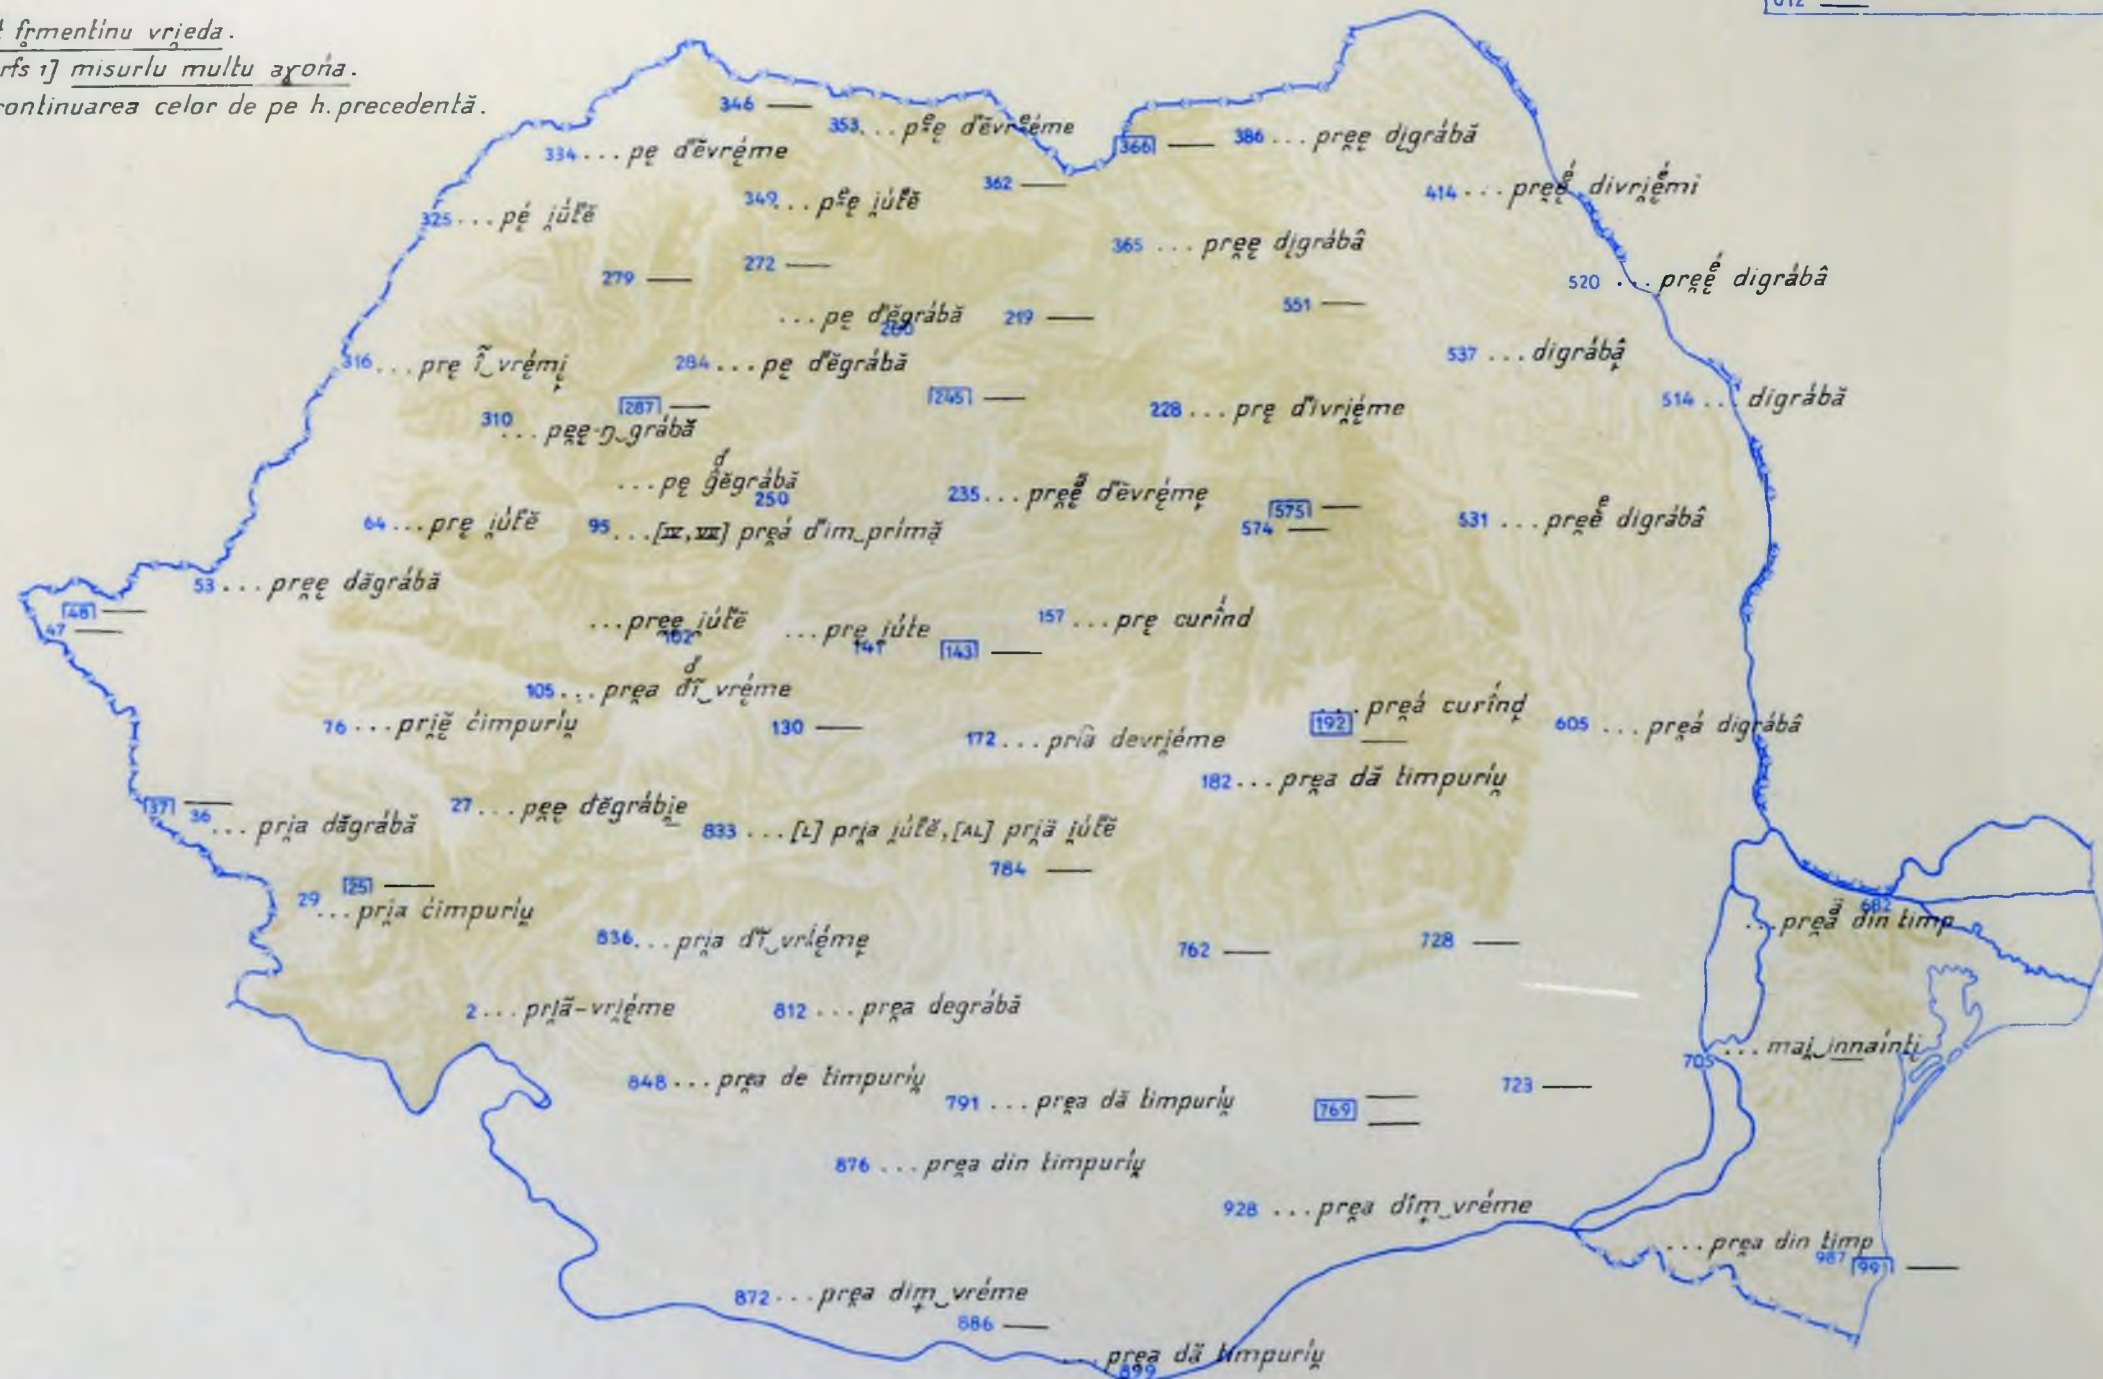 012 —
frmentinu vrịeda.
rfs 1] misurlu multu aɣońa.
continuarea celor de pe h. precedentă.
346 —
353... pᵉę d'ĕvrᵉéme
334... pę d'ĕvrę́me
366 —
386 ... pre̯ę digrábă
362 —
414 ... pre̯ę́ divri̯ę́mi
349... pᵉę i̯út́ĕ
325... pę́ i̯út́ĕ
365 ... pre̯ę digrábâ
279 —
272 —
520 ... pre̯ę́ digrábâ
... pę d'ĕgrábă
260
219 —
551 —
316... prę ĩ‿vrę́mi̯
284... pę d'ĕgrábă
537 ... digrábâ̯
287 —
245 —
228... prę d'ivri̯ę́me
514 ... digrábă
310 ... pe̯ę-ŋ‿grábă
... pę ǵĕgrábă
d
250
235... pre̯ę̆ d'ĕvrę́me̯
575 —
574 —
531 ... pre̯ę digrábâ
64... prę i̯út́ĕ
95... [IV, VII] pre̯á d'im‿prímă̦
53... pre̯ę dăgrábă
48 —
47 —
... pre̯ę i̯út́ĕ
102
... prę i̯úte
141
143 —
157 ... prę curî́nd
105... pre̯a d'ĩ‿vrę́me
d'
76... pri̯ĕ̦ ćimpuríu̯
130 —
172... pri̯ă devri̯éme
... pre̯á curî́nd̦
192 —
605 ... pre̯á digrábâ
182... pre̯a dă timpuríu̯
37 —
36 ... pri̯a dăgrábă
27... pe̯ę d'ĕgrábi̯e
833 ... [L] pri̯a i̯út́ĕ, [AL] pri̯ă i̯út́ĕ
784 —
25 —
29 ... pri̯a ćimpuríu̯
836... pri̯a d'ĩ‿vri̯ę́me̯
762 —
728 —
682
... pre̯ắ din timp
2... pri̯ã-vri̯ę́me
812 ... pre̯a degrábă
705 ... mai̯‿innaínti̯
848... pre̯a de timpuríu̯
791 ... pre̯a dă timpuríu̯
769 —
723 —
876 ... pre̯a din timpuríu̯
928 ... pre̯a dîm̦‿vréme
... pre̯a din timp
987
991 —
872... pre̯a dim̦‿vréme
886 —
pre̯a dă timpuríu̯
899